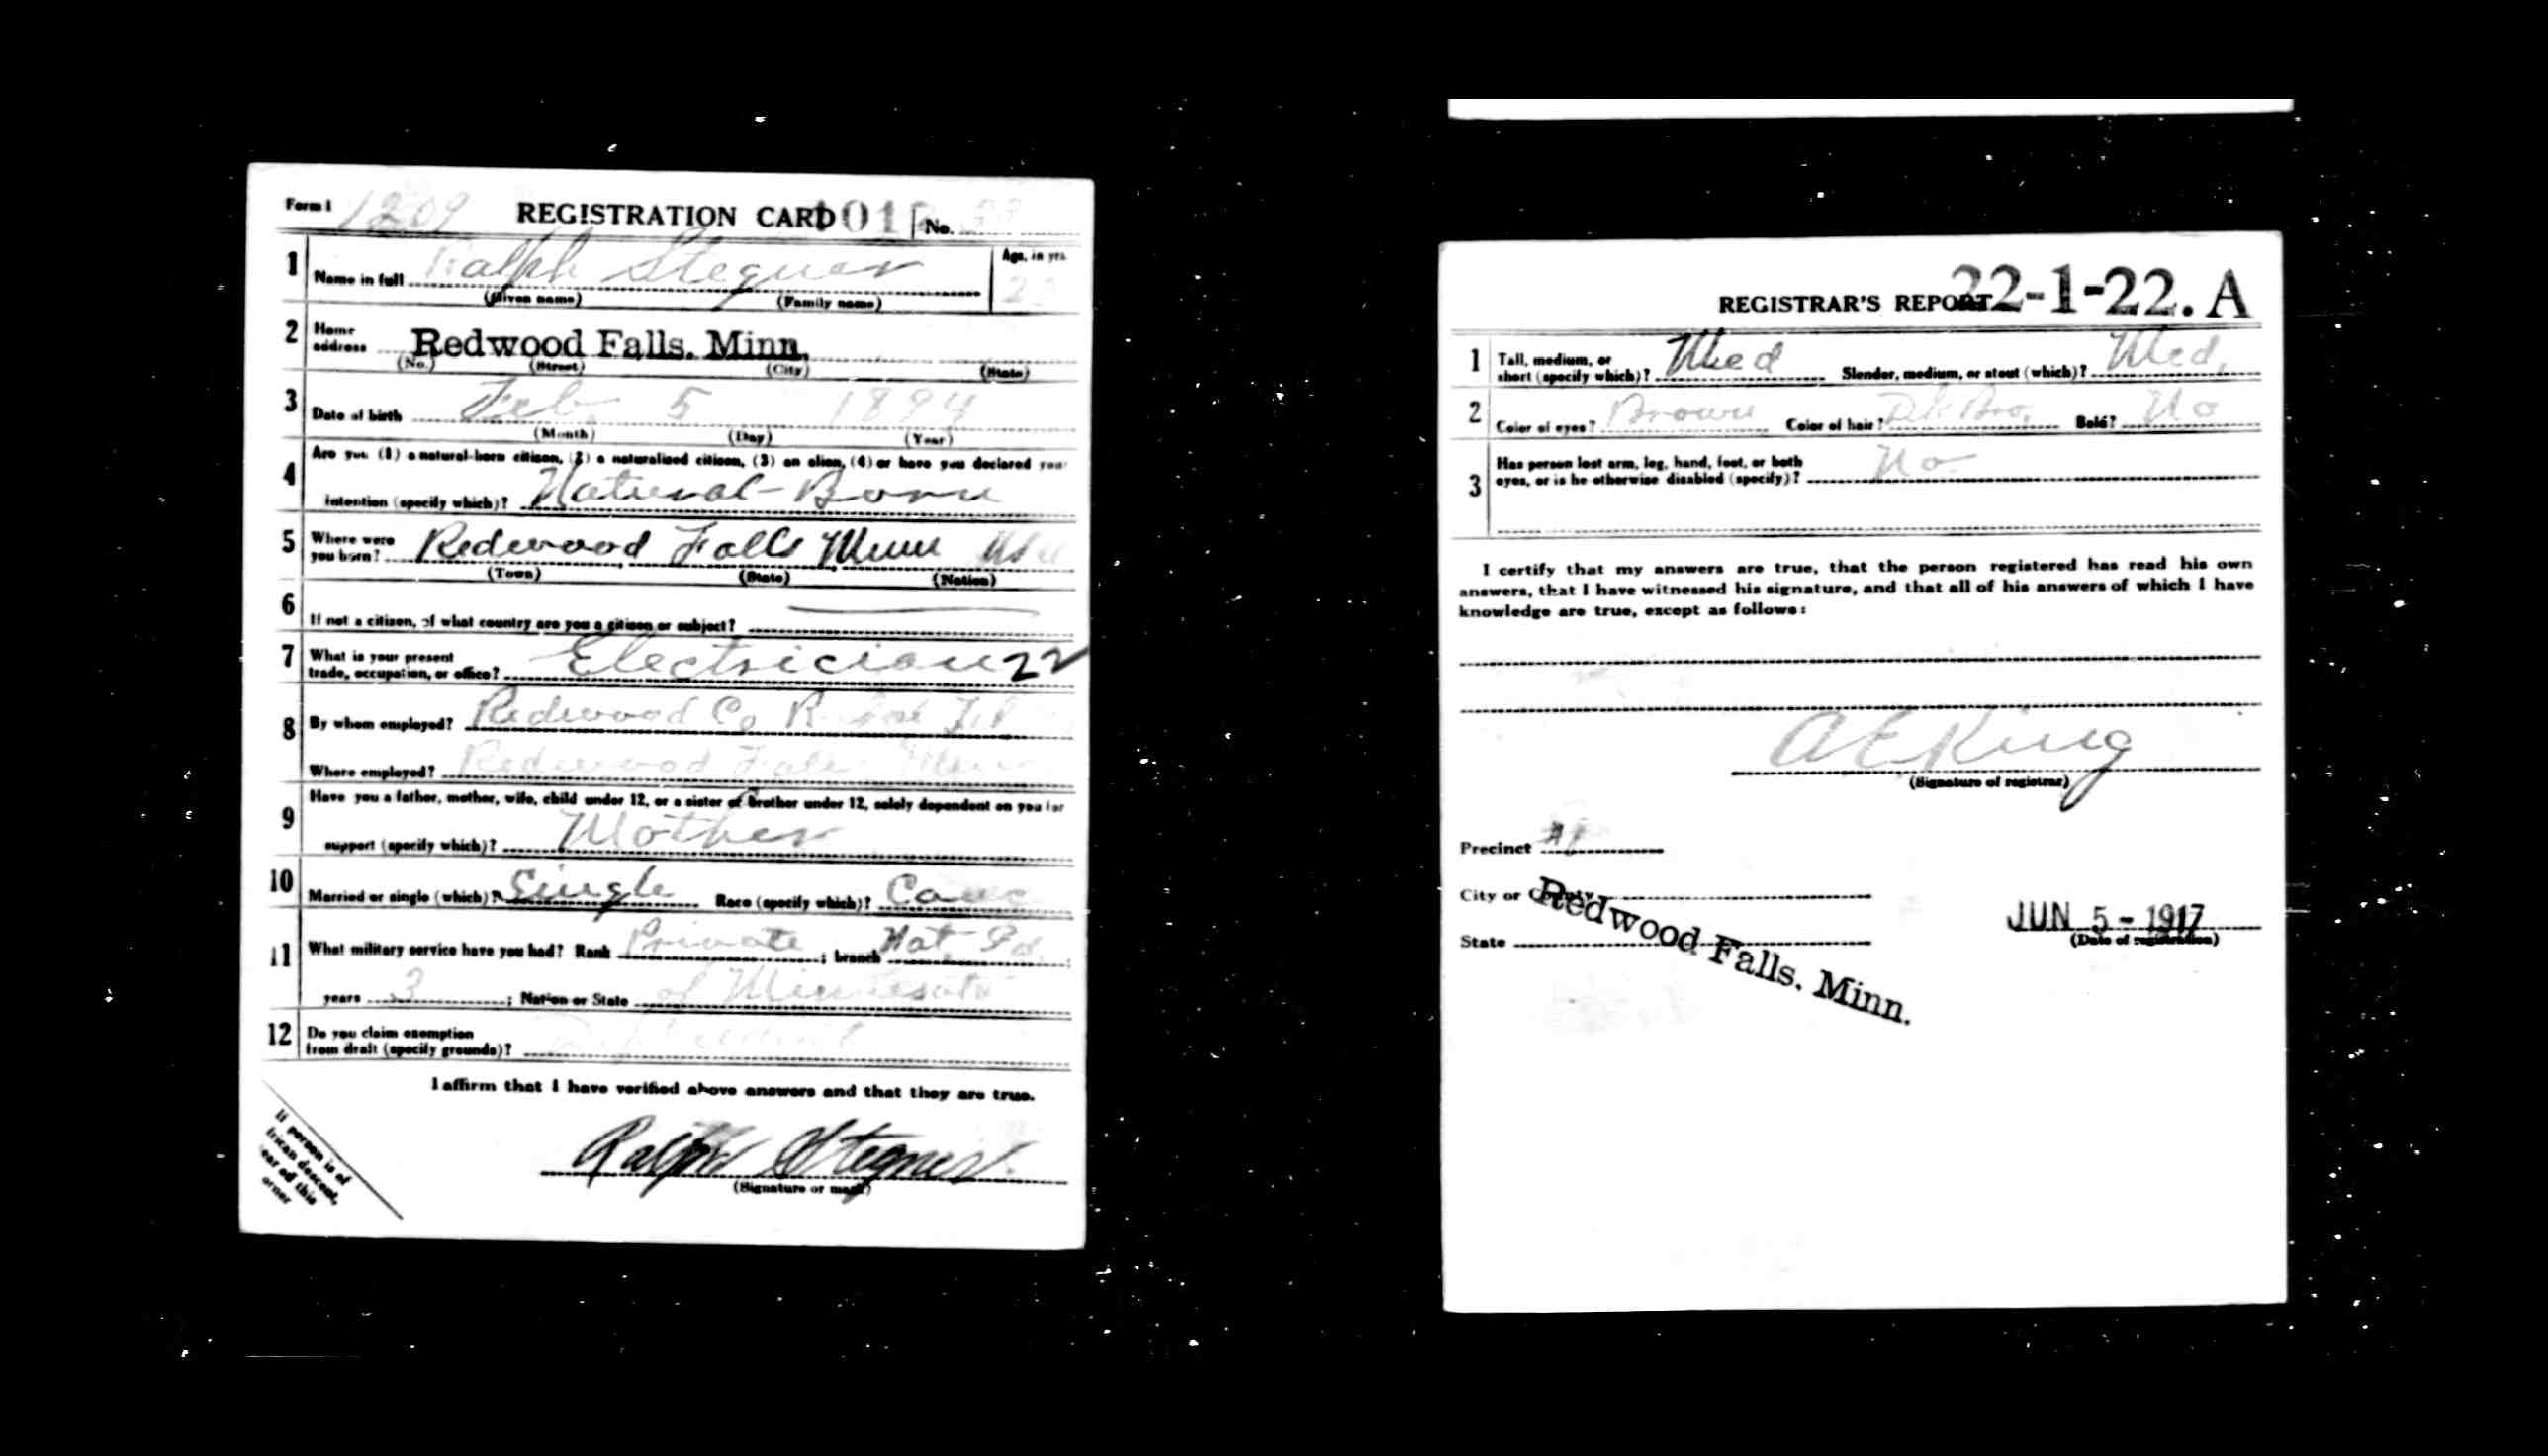 Form 1 1209 REGISTRATION CARD No.
1 Name in full Ralph Stegner Age, in yrs.
(Given name) (Family name)
2 Home address Redwood Falls. Minn.
(No.) (Street) (City) (State)
3 Date of birth Feb. 5 1894
(Month) (Day) (Year)
4 Are you (1) a natural-born citizen, (2) a naturalized citizen, (3) an alien, (4) or have you declared your
intention (specify which)? Natural-Born
5 Where were you born? Redwood Falls Minn
(Town) (State) (Nation)
6 If not a citizen, of what country are you a citizen or subject?
7 What is your present trade, occupation, or office? Electrician 22
8 By whom employed? Redwood Co
Where employed? Redwood Falls Minn
9 Have you a father, mother, wife, child under 12, or a sister or brother under 12, solely dependent on you for
support (specify which)? Mother
10 Married or single (which)? Single Race (specify which)? Cauc
11 What military service have you had? Rank Private ; branch Nat. Gd. ;
years 3 ; Nation or State of Minnesota
12 Do you claim exemption
from draft (specify grounds)?
I affirm that I have verified above answers and that they are true.
Ralph Stegner
(Signature or mark)
If person is of
frican descent,
ear off this
orner
REGISTRAR'S REPORT 22-1-22. A
1 Tall, medium, or short (specify which)? Med Slender, medium, or stout (which)? Med.
2 Color of eyes? Brown Color of hair? Dk Bro. Bald? No
3 Has person lost arm, leg, hand, foot, or both
eyes, or is he otherwise disabled (specify)? No
I certify that my answers are true, that the person registered has read his own
answers, that I have witnessed his signature, and that all of his answers of which I have
knowledge are true, except as follows:
A E King
(Signature of registrar)
Precinct #1
City or County
State
Redwood Falls. Minn.
JUN 5 - 1917
(Date of registration)